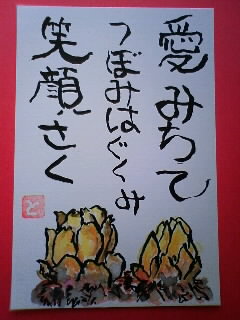 愛みちて
つぼみはぐくみ
笑顔さく
と